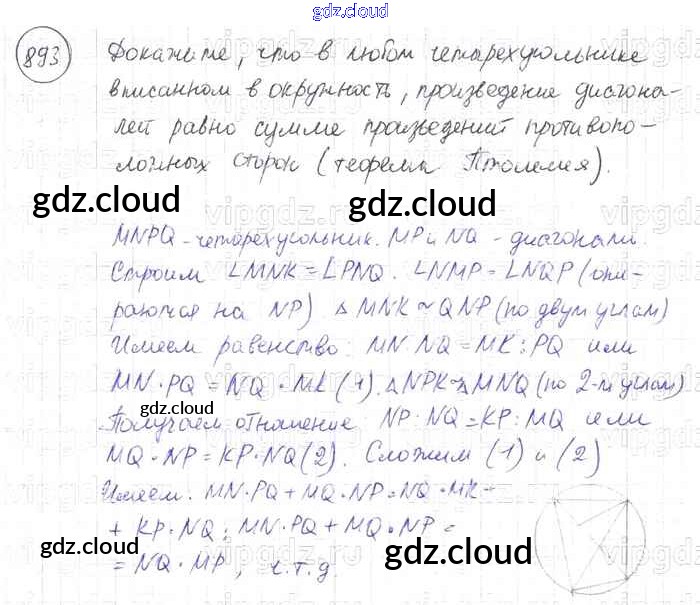 gdz.cloud
893 Докажите, что в любом четырехугольнике
вписанном в окружность, произведение диагона-
лей равно сумме произведений противопо-
ложных сторон (теорема Птолемея).
gdz.cloud gdz.cloud
MNPQ - четырехугольник. MP и NQ - диагонали.
Строим ∠MNK = ∠PNQ. ∠NMP = ∠NQP (опи-
раются на NP) △ MNK ~ QNP (по двум углам)
Имеем равенство: MN:NQ = MK:PQ или
MN·PQ = NQ·MK (1). △NPK ~ △MNQ (по 2-м углам)
gdz.cloud
Получаем отношение: NP:NQ = KP:MQ или
MQ·NP = KP·NQ (2). Сложим (1) и (2)
Имеем: MN·PQ + MQ·NP = NQ·MK +
+ KP·NQ; MN·PQ + MQ·NP =
gdz.cloud gdz.cloud
= NQ·MP, ч.т.д.